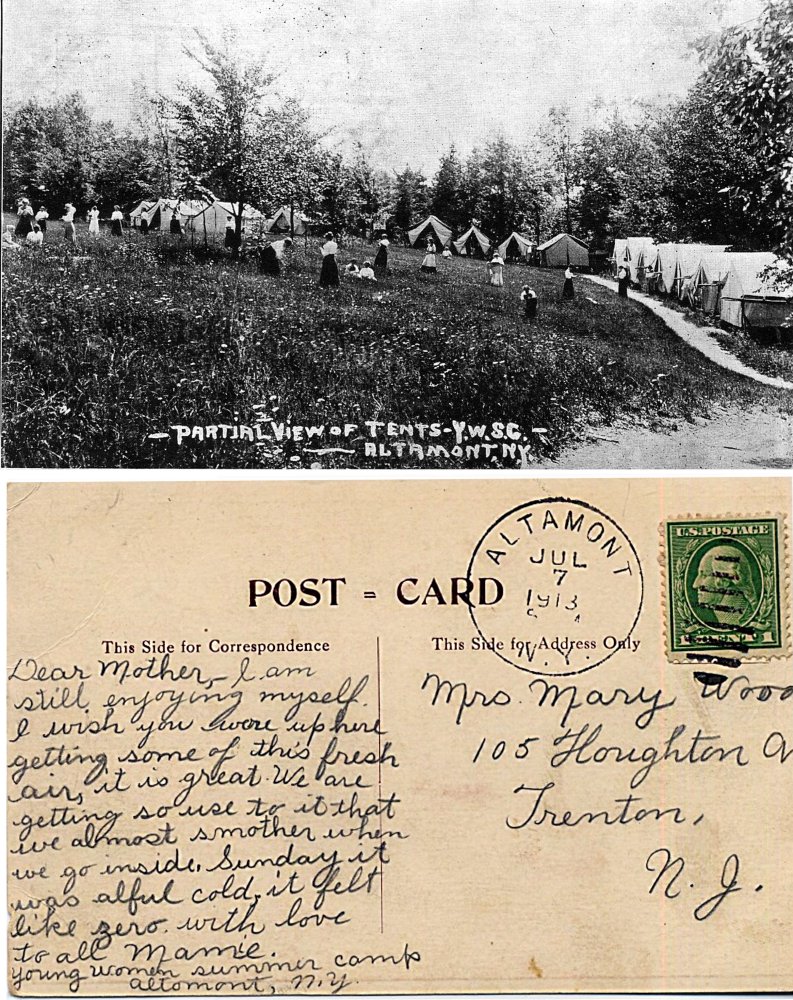 - PARTIAL VIEW OF TENTS - Y.W.S.C. -
ALTAMONT, NY.
ALTAMONT
JUL
7
1913
N.Y.
U.S. POSTAGE
1
POST = CARD
This Side for Correspondence
This Side for Address Only
Dear Mother, - I am
still enjoying myself.
I wish you were up here
getting some of this fresh
air, it is great. We are
getting so use to it that
we almost smother when
we go inside. Sunday it
was alful cold, it felt
like zero. with love
to all Mamie.
young women summer camp
altomont, N.Y.
Mrs. Mary Wood
105 Houghton A
Trenton,
N. J.